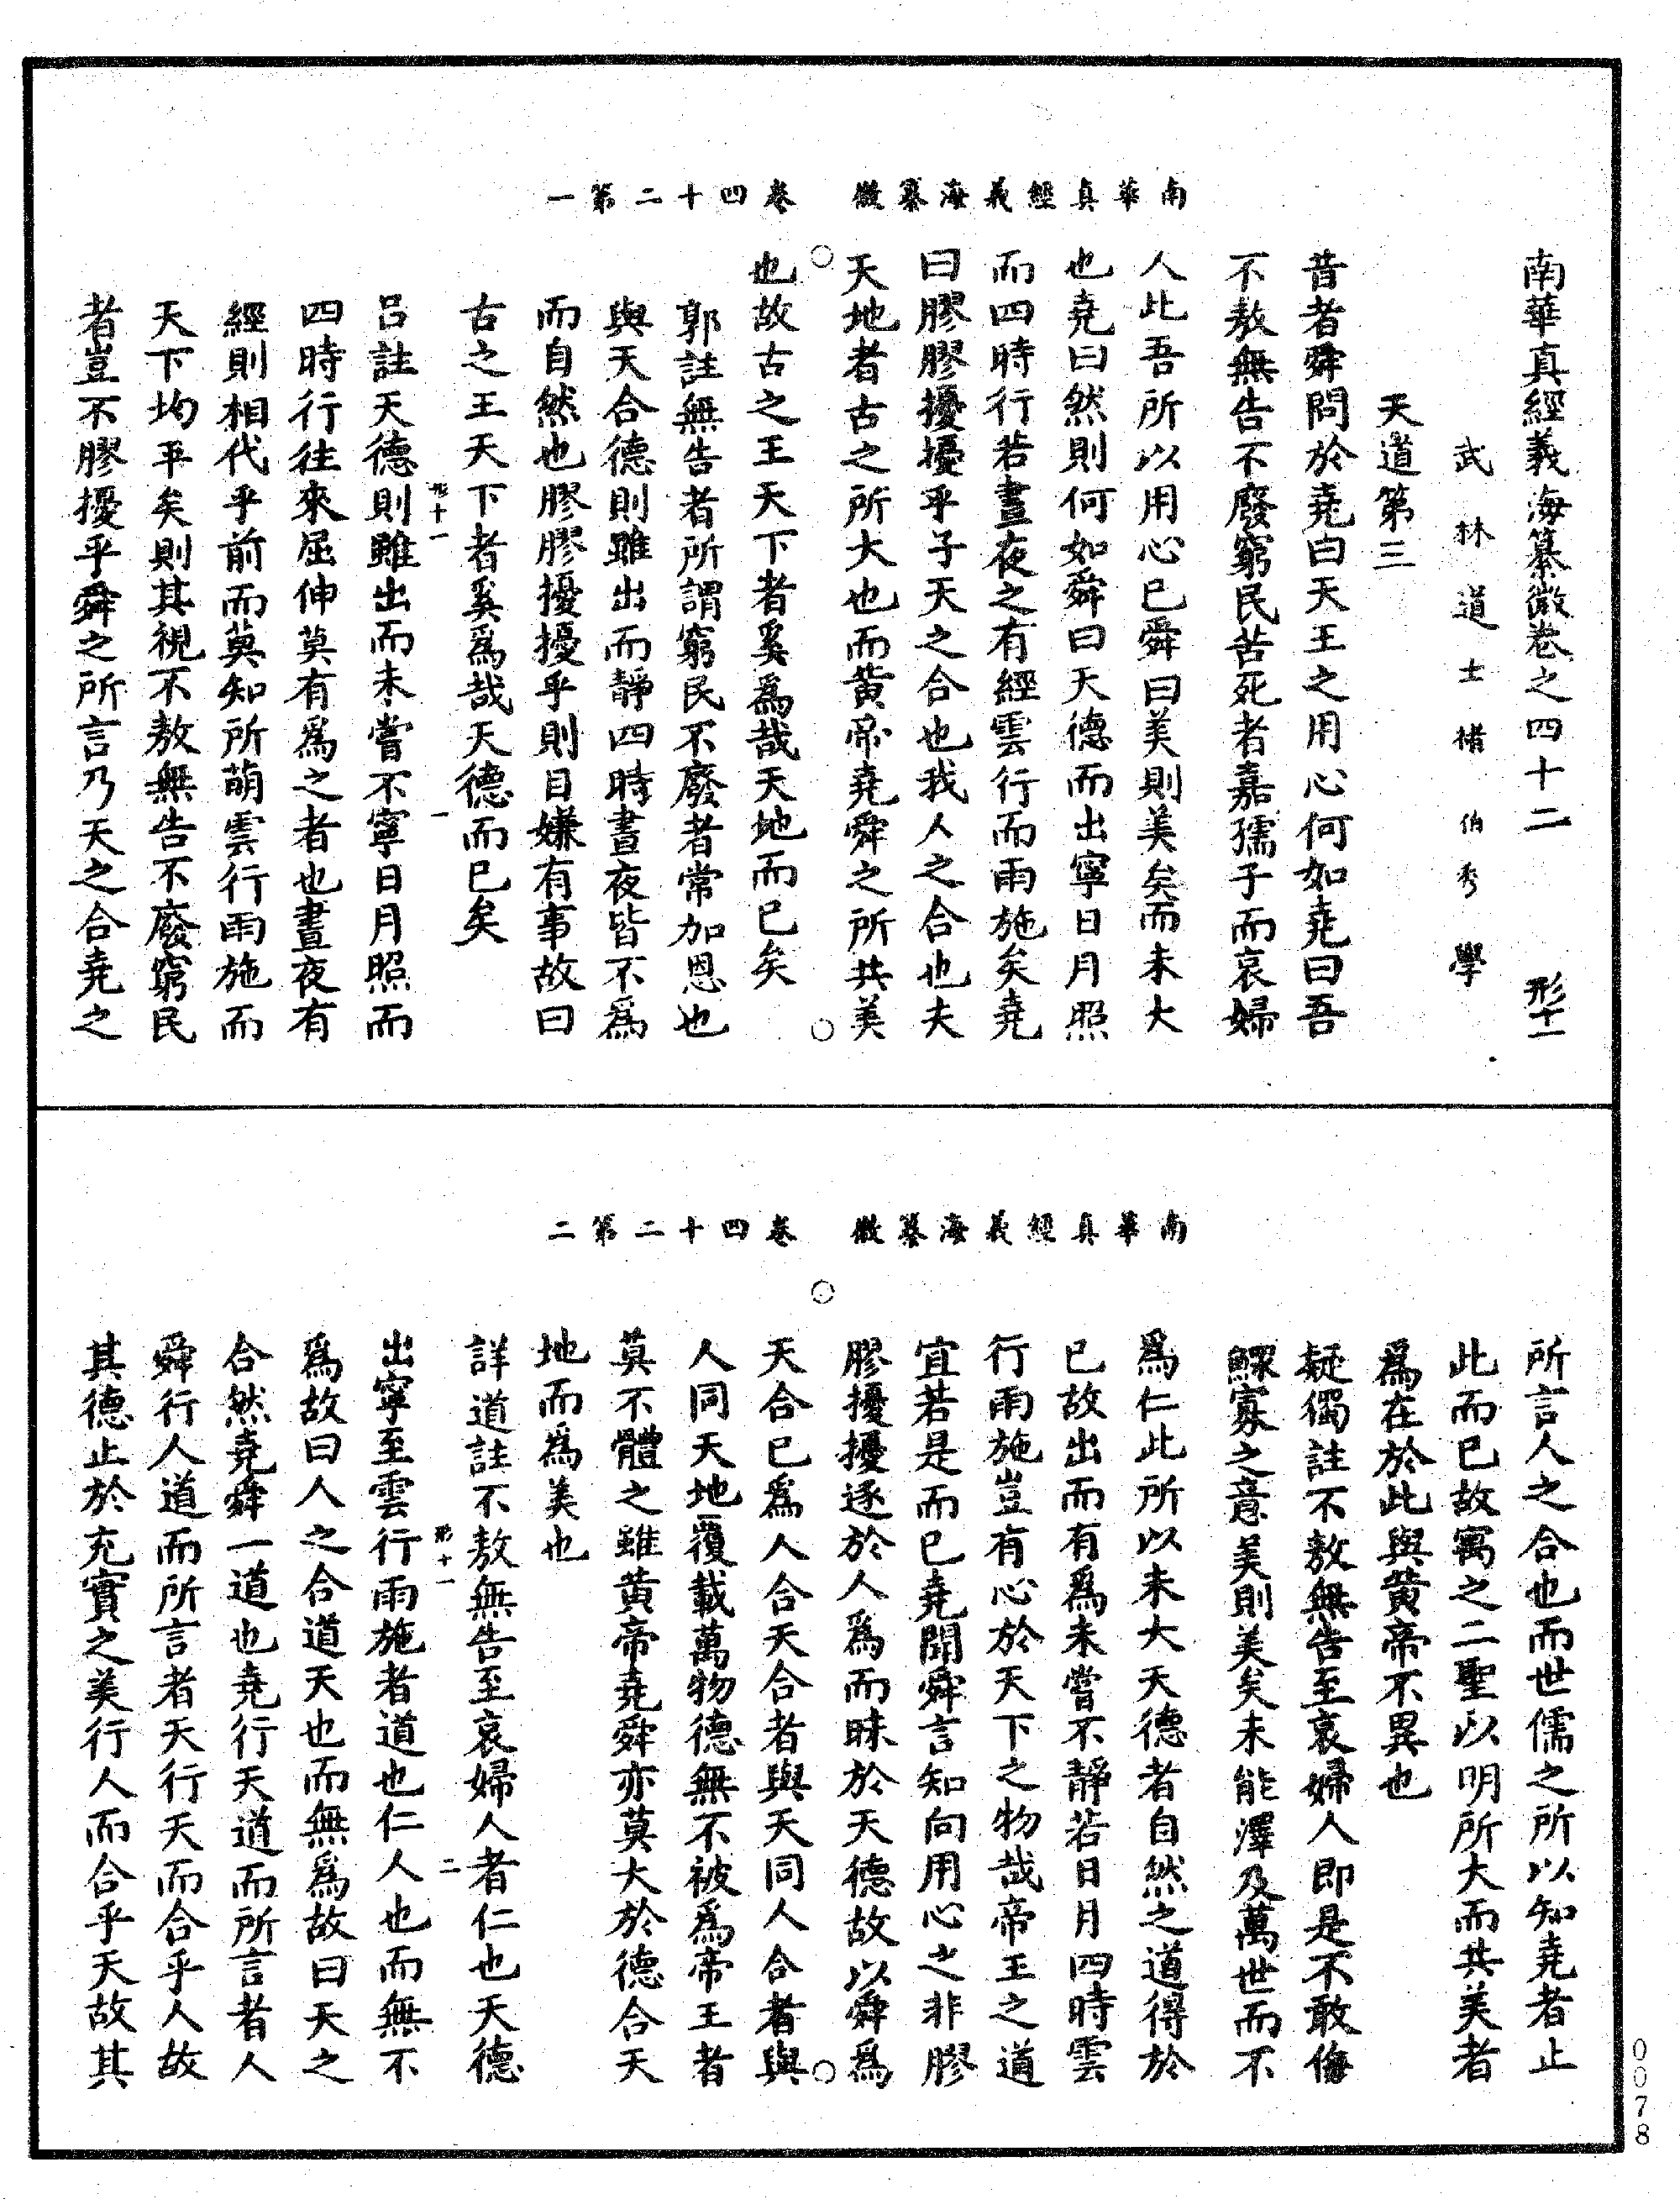 南華真經義海纂微　卷四十二第一
南華真經義海纂微卷之四十二　形十一
武林道士褚伯秀學
天道第三
昔者舜問於堯曰天王之用心何如堯曰吾
不敖無告不廢窮民苦死者嘉孺子而哀婦
人此吾所以用心已舜曰美則美矣而未大
也堯曰然則何如舜曰天德而出寧日月照
而四時行若晝夜之有經雲行而雨施矣堯
曰膠膠擾擾乎子天之合也我人之合也夫
天地者古之所大也而黄帝堯舜之所共美
也故古之王天下者奚爲哉天地而已矣
郭註無告者所謂窮民不廢者常加恩也
與天合德則雖出而靜四時晝夜皆不爲
而自然也膠膠擾擾乎則目嫌有事故曰
古之王天下者奚爲哉天德而已矣
形十一　一
呂註天德則雖出而未嘗不寧日月照而
四時行往來屈伸莫有爲之者也晝夜有
經則相代乎前而莫知所萌雲行雨施而
天下均平矣則其視不敖無告不廢窮民
者豈不膠擾乎舜之所言乃天之合堯之
南華真經義海纂微　卷四十二第二
所言人之合也而世儒之所以知堯者止
此而已故寓之二聖以明所大而共美者
爲在於此與黄帝不異也
疑獨註不敖無告至哀婦人即是不敢侮
鰥寡之意美則美矣未能澤及萬世而不
爲仁此所以未大天德者自然之道得於
已故出而有爲未嘗不靜若日月四時雲
行雨施豈有心於天下之物哉帝王之道
宜若是而已堯聞舜言知向用心之非膠
膠擾擾逐於人爲而昧於天德故以舜爲
天合已爲人合天合者與天同人合者與
人同天地覆載萬物德無不被爲帝王者
莫不體之雖黄帝堯舜亦莫大於德合天
地而爲美也
詳道註不敖無告至哀婦人者仁也天德
形十一　二
出寧至雲行雨施者道也仁人也而無不
爲故曰人之合道天也而無爲故曰天之
合然堯舜一道也堯行天道而所言者人
舜行人道而所言者天行天而合乎人故
其德止於充實之美行人而合乎天故其
0078